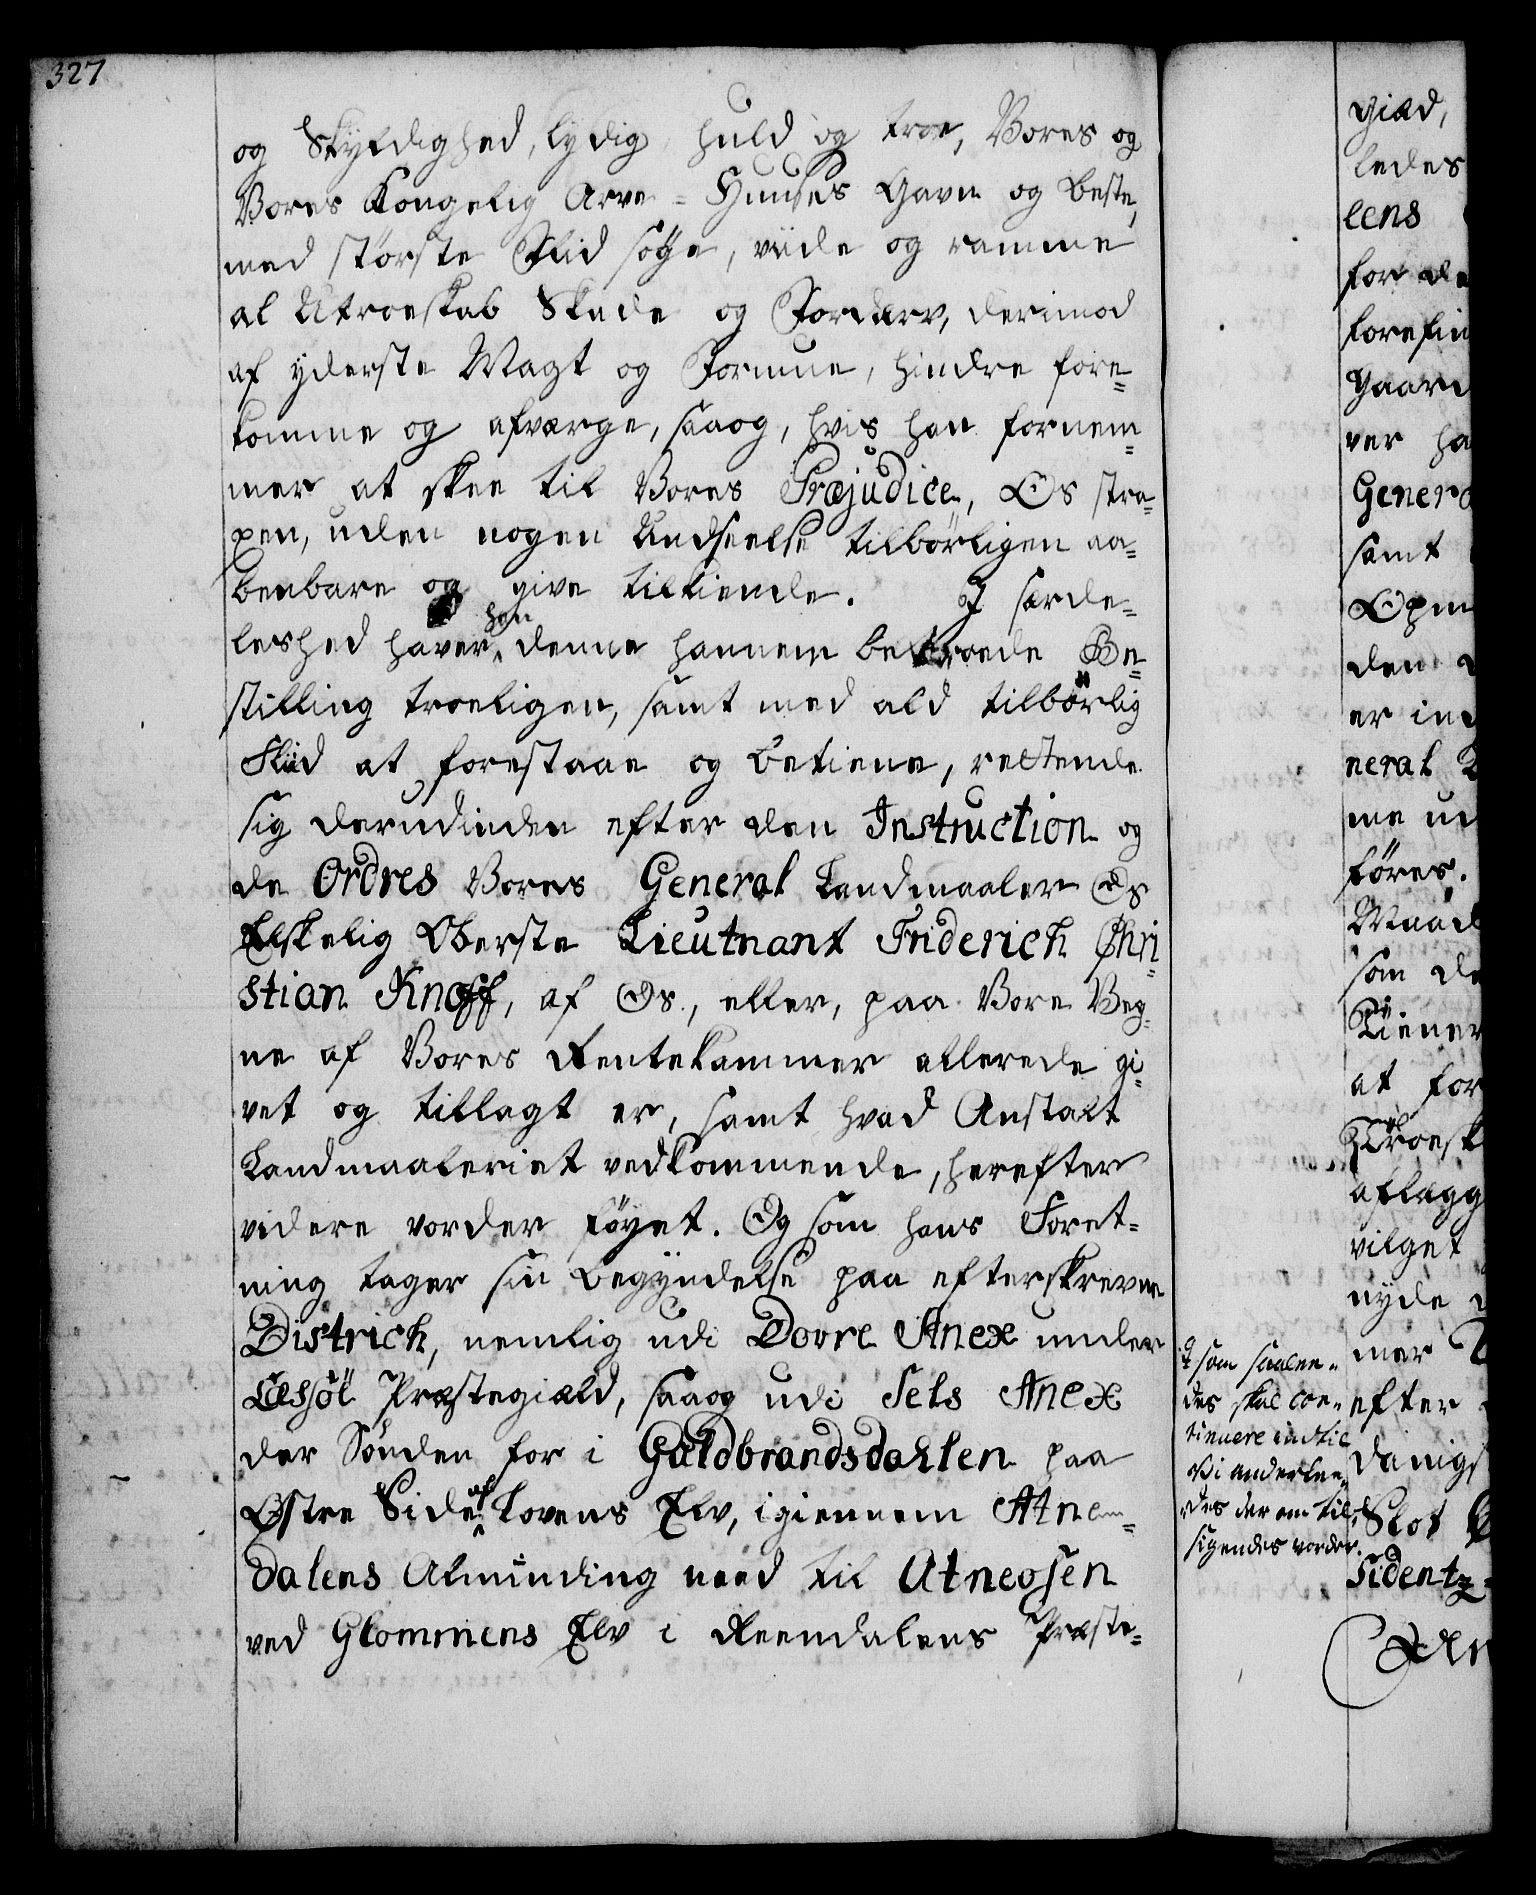 327
og Skyldighed, lydig huld og troe, Vores og
Vores Kongelig Arve-Huuses Gavn og beste,
med største Fliid søge, viide og ramme
al Utroeskab Skade og Forderv, derimod
af yderste Magt og Formue, hindre fore=
komme og afværge, saaog, hvis han fornem=
mer at skee til Vores Præjudice, Os stra=
xen, uden nogen Undseelse tilbørligen aa=
benbare og give tilkiende. I særde=
leshed haver han denne hannem betroede Be=
stilling troeligen, samt med ald tilbørlig
Fliid at forestaae og betiene, rettende
sig derudinden efter den Instruction og
de Ordres Vores General Landmaaler Os
Elskelig Oberste Lieutnant Friderich Chri=
stian Knoff, af Os, eller, paa Vore Veg=
ne af Vores Rentekammer allerede gi=
vet og tillagt er, samt hvad Anstalt
Landmaaleriet vedkommende, herefter
videre vorder føyet. Og som hans Forret=
ning tager sin begyndelse paa efterskrevne
District, nemlig udi Dovre Anex under
Lessøe Præstegiæld, saaog udi Sels Anex
der Sønden for i Guldbrandsdahlen paa
Østre Side af Lovens Elv, igiennem Atne=
dalens Alminding need til Atneosen
ved Glommens Elv i Reendalens Præste=
som saalee=
des skal con=
tinuere indtil
Vi anderlee=
des der om til=
sigendes vorder.
giæld,
ledes
lens
for de
forefin
Gaard
ver ha
Genera
samt
Opm
den
er in
neral
me ud
føres.
Maad
som de
Tiener
at for
Troesk
aflægg
vilget
nyde
mer
efter
danigs
Slot
Sidentz